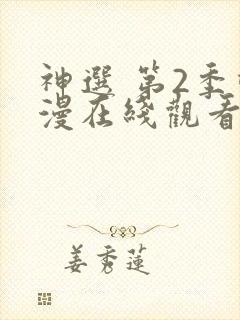 神選 第2季
漫在綫觀看
姜秀蓮